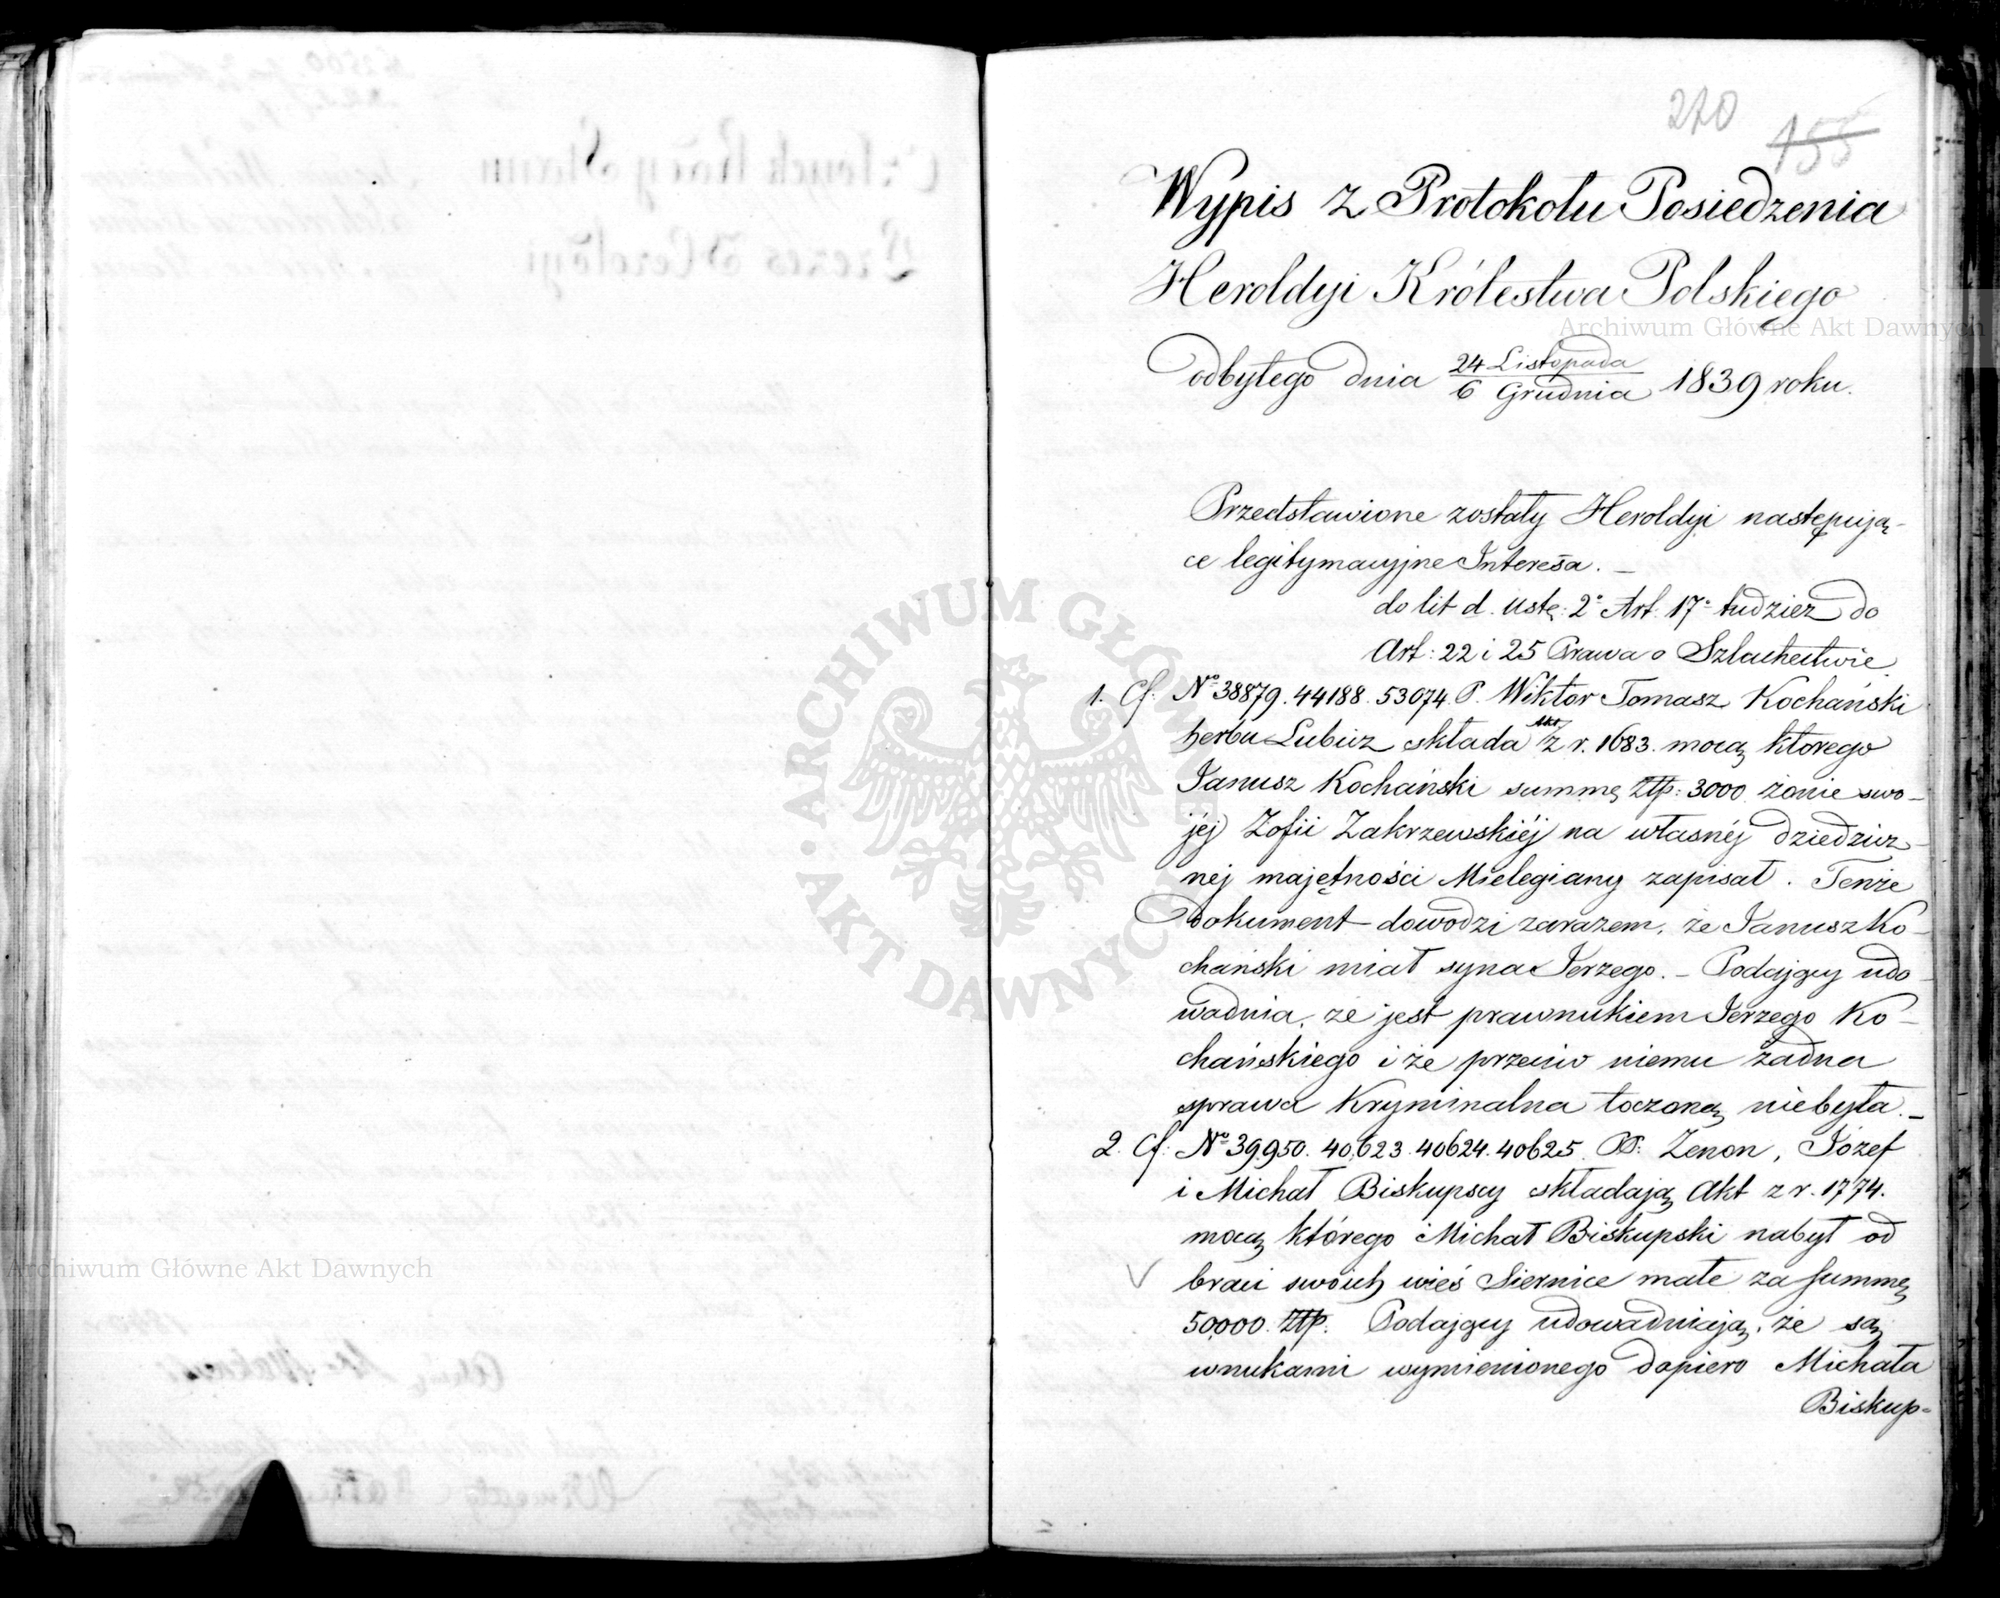 220
155
Wypis z Protokołu Posiedzenia
Heroldyi Królestwa Polskiego
odbytego dnia 24 Listopada / 6 Grudnia 1839 roku.
Przedstawione zostały Heroldyi następują-
ce legitymacyjne Interesa. —
do lit d. Ustę: 2° Art: 17° tudzież do
Art: 22 i 25 Prawa o Szlachectwie
1. Cf: No 38879. 44188. 53074. P. Wiktor Tomasz Kochański
herbu Lubicz składa Akt z r. 1683. mocą ktorego
Janusz Kochański summę Złp: 3000 żonie swo-
jéj Zofii Zakrzewskiéj na własnéj dziedzicz-
nej majętności Mielegiany zapisał. Tenże
dokument dowodzi zarazem, że Janusz Ko-
chański miał syna Jerzego. — Podający udo-
wadnia, że jest prawnukiem Jerzego Ko-
chańskiego i że przeciw niemu żadna
sprawa Kryminalna toczoną niebyła. —
2. Cf: No 39950. 40,623. 40624. 40625. PP: Zenon, Józef
i Michał Biskupscy składają Akt z r. 1774.
mocą którego Michał Biskupski nabył od
braci swoich wieś Siernice małe za summę
50,000 Złp: Podający udowadniają, że są
wnukami wymienionego dopiero Michała
Biskup-
ARCHIWUM GŁÓWNE AKT DAWNYCH
Archiwum Główne Akt Dawnych
Archiwum Główne Akt Dawnych